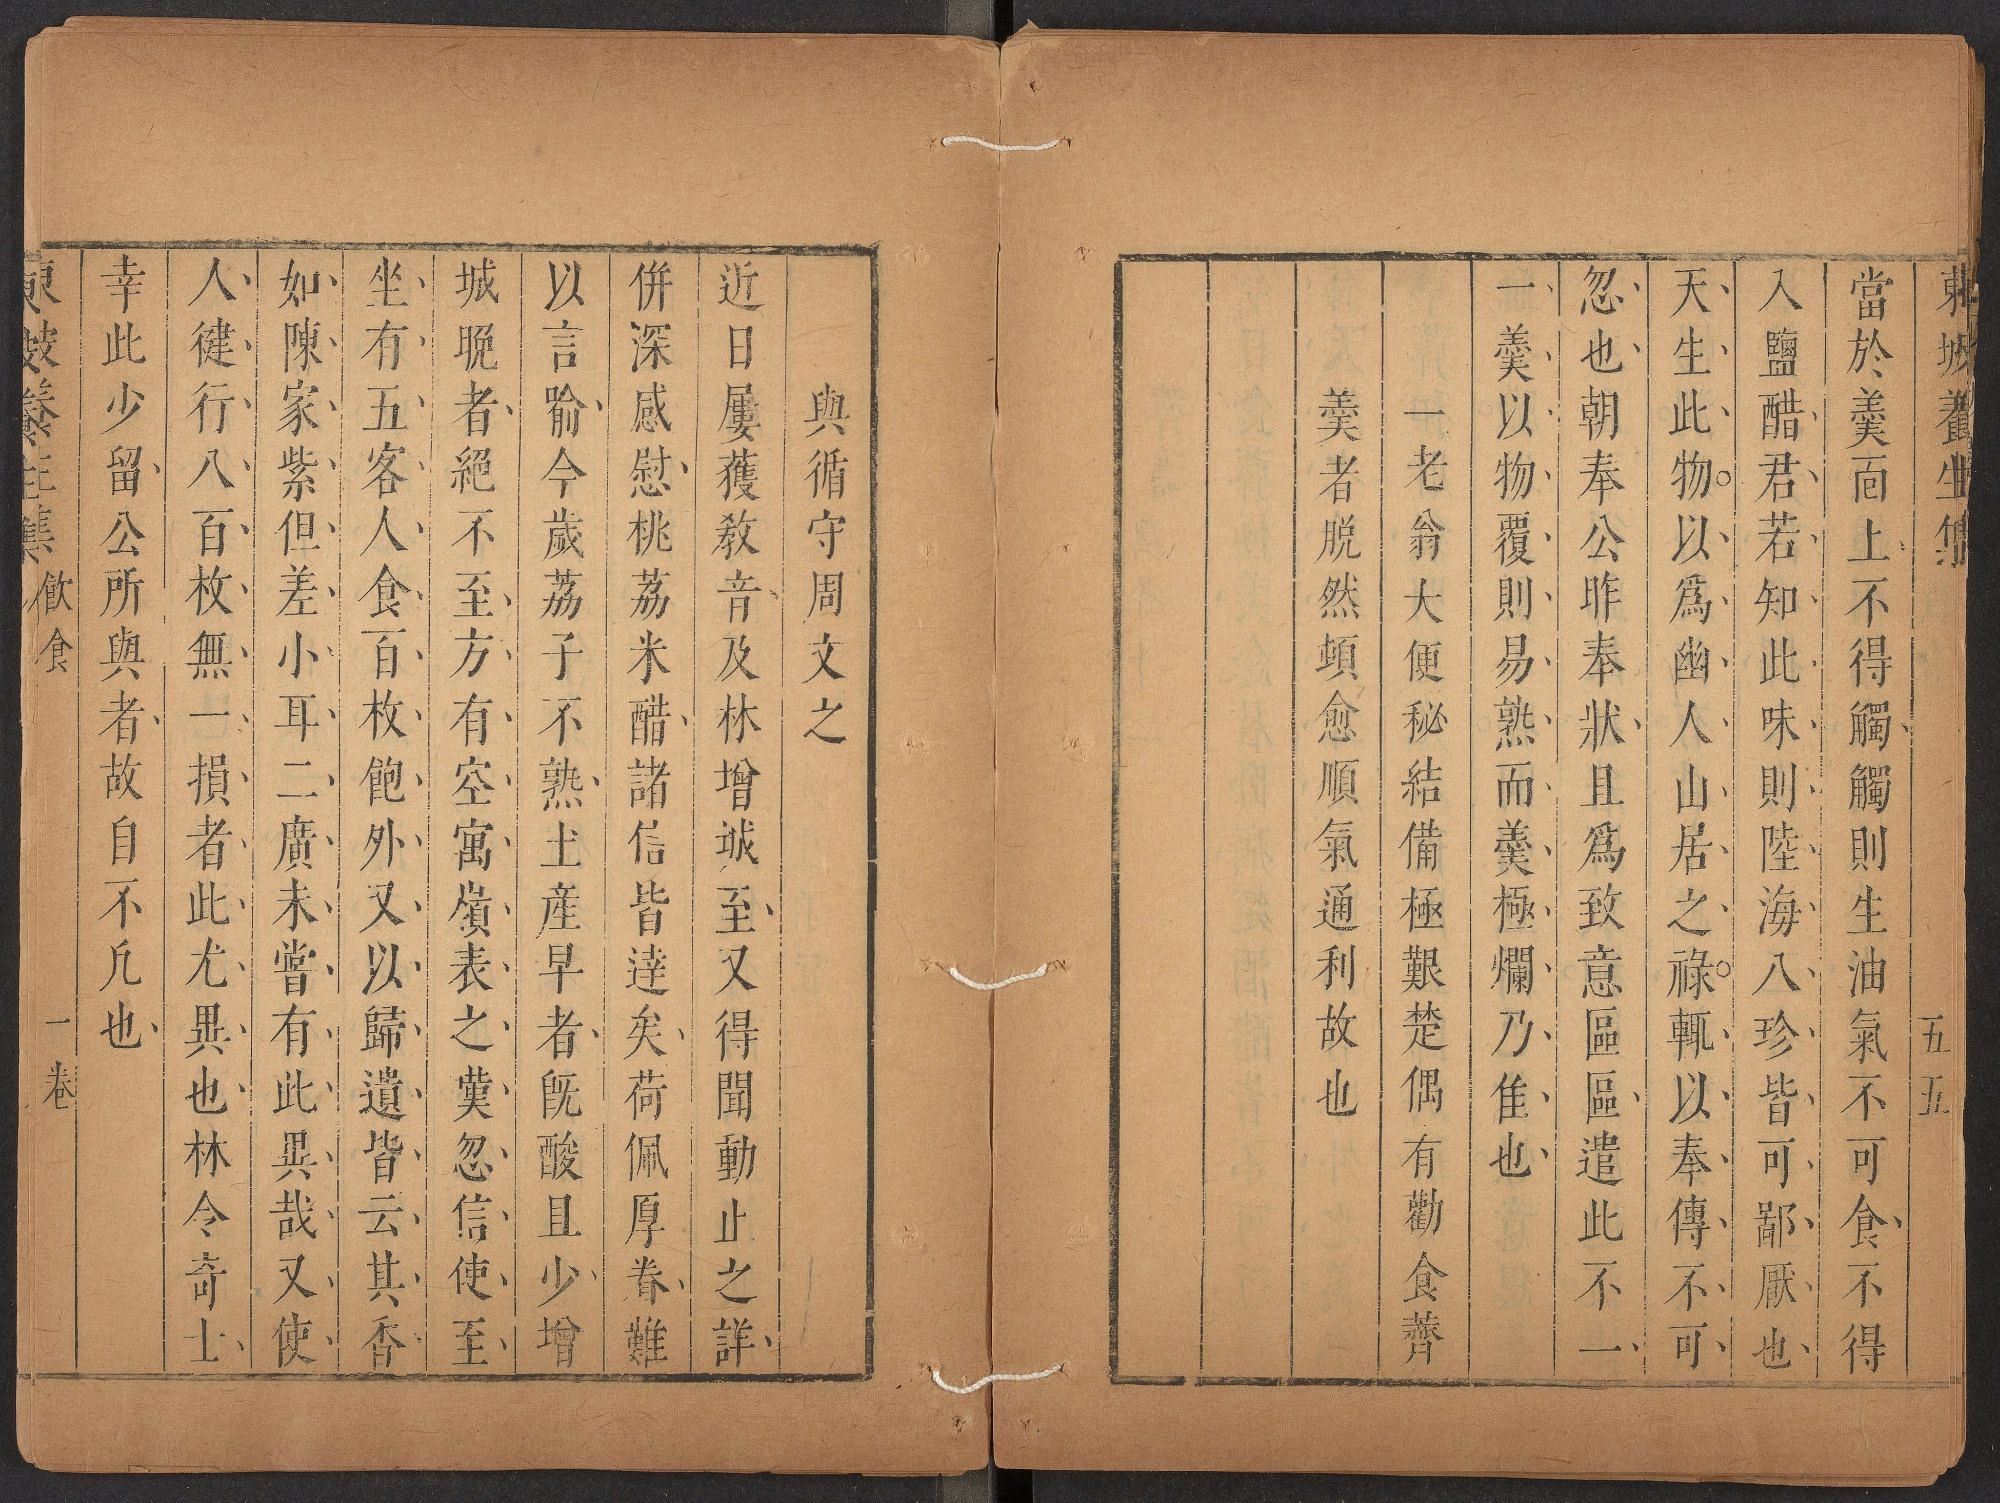 東坡養生集
五五
當於羹面上不得觸觸則生油氣不可食不得
入鹽醋君若知此味則陸海八珍皆可鄙厭也
天生此物以爲幽人山居之祿輒以奉傳不可
忽也朝奉公昨奉狀且爲致意區區遣此不一
一羹以物覆則易熟而羹極爛乃佳也
一老翁大便秘結備極艱楚偶有勸食薺
羹者脱然頓愈順氣通利故也
與循守周文之
近日屢獲敎音及林增城至又得聞動止之詳
併深感慰桃荔米醋諸信皆達矣荷佩厚眷難
以言喻今歲荔子不熟土產早者旣酸且少增
城晚者絕不至方有空寓嶺表之嘆忽信使至
坐有五客人食百枚飽外又以歸遺皆云其香
如陳家紫但差小耳二廣未嘗有此異哉又使
人徤行八百枚無一損者此尤異也林令奇士
幸此少留公所與者故自不凡也
東坡養生集
飲食
一卷